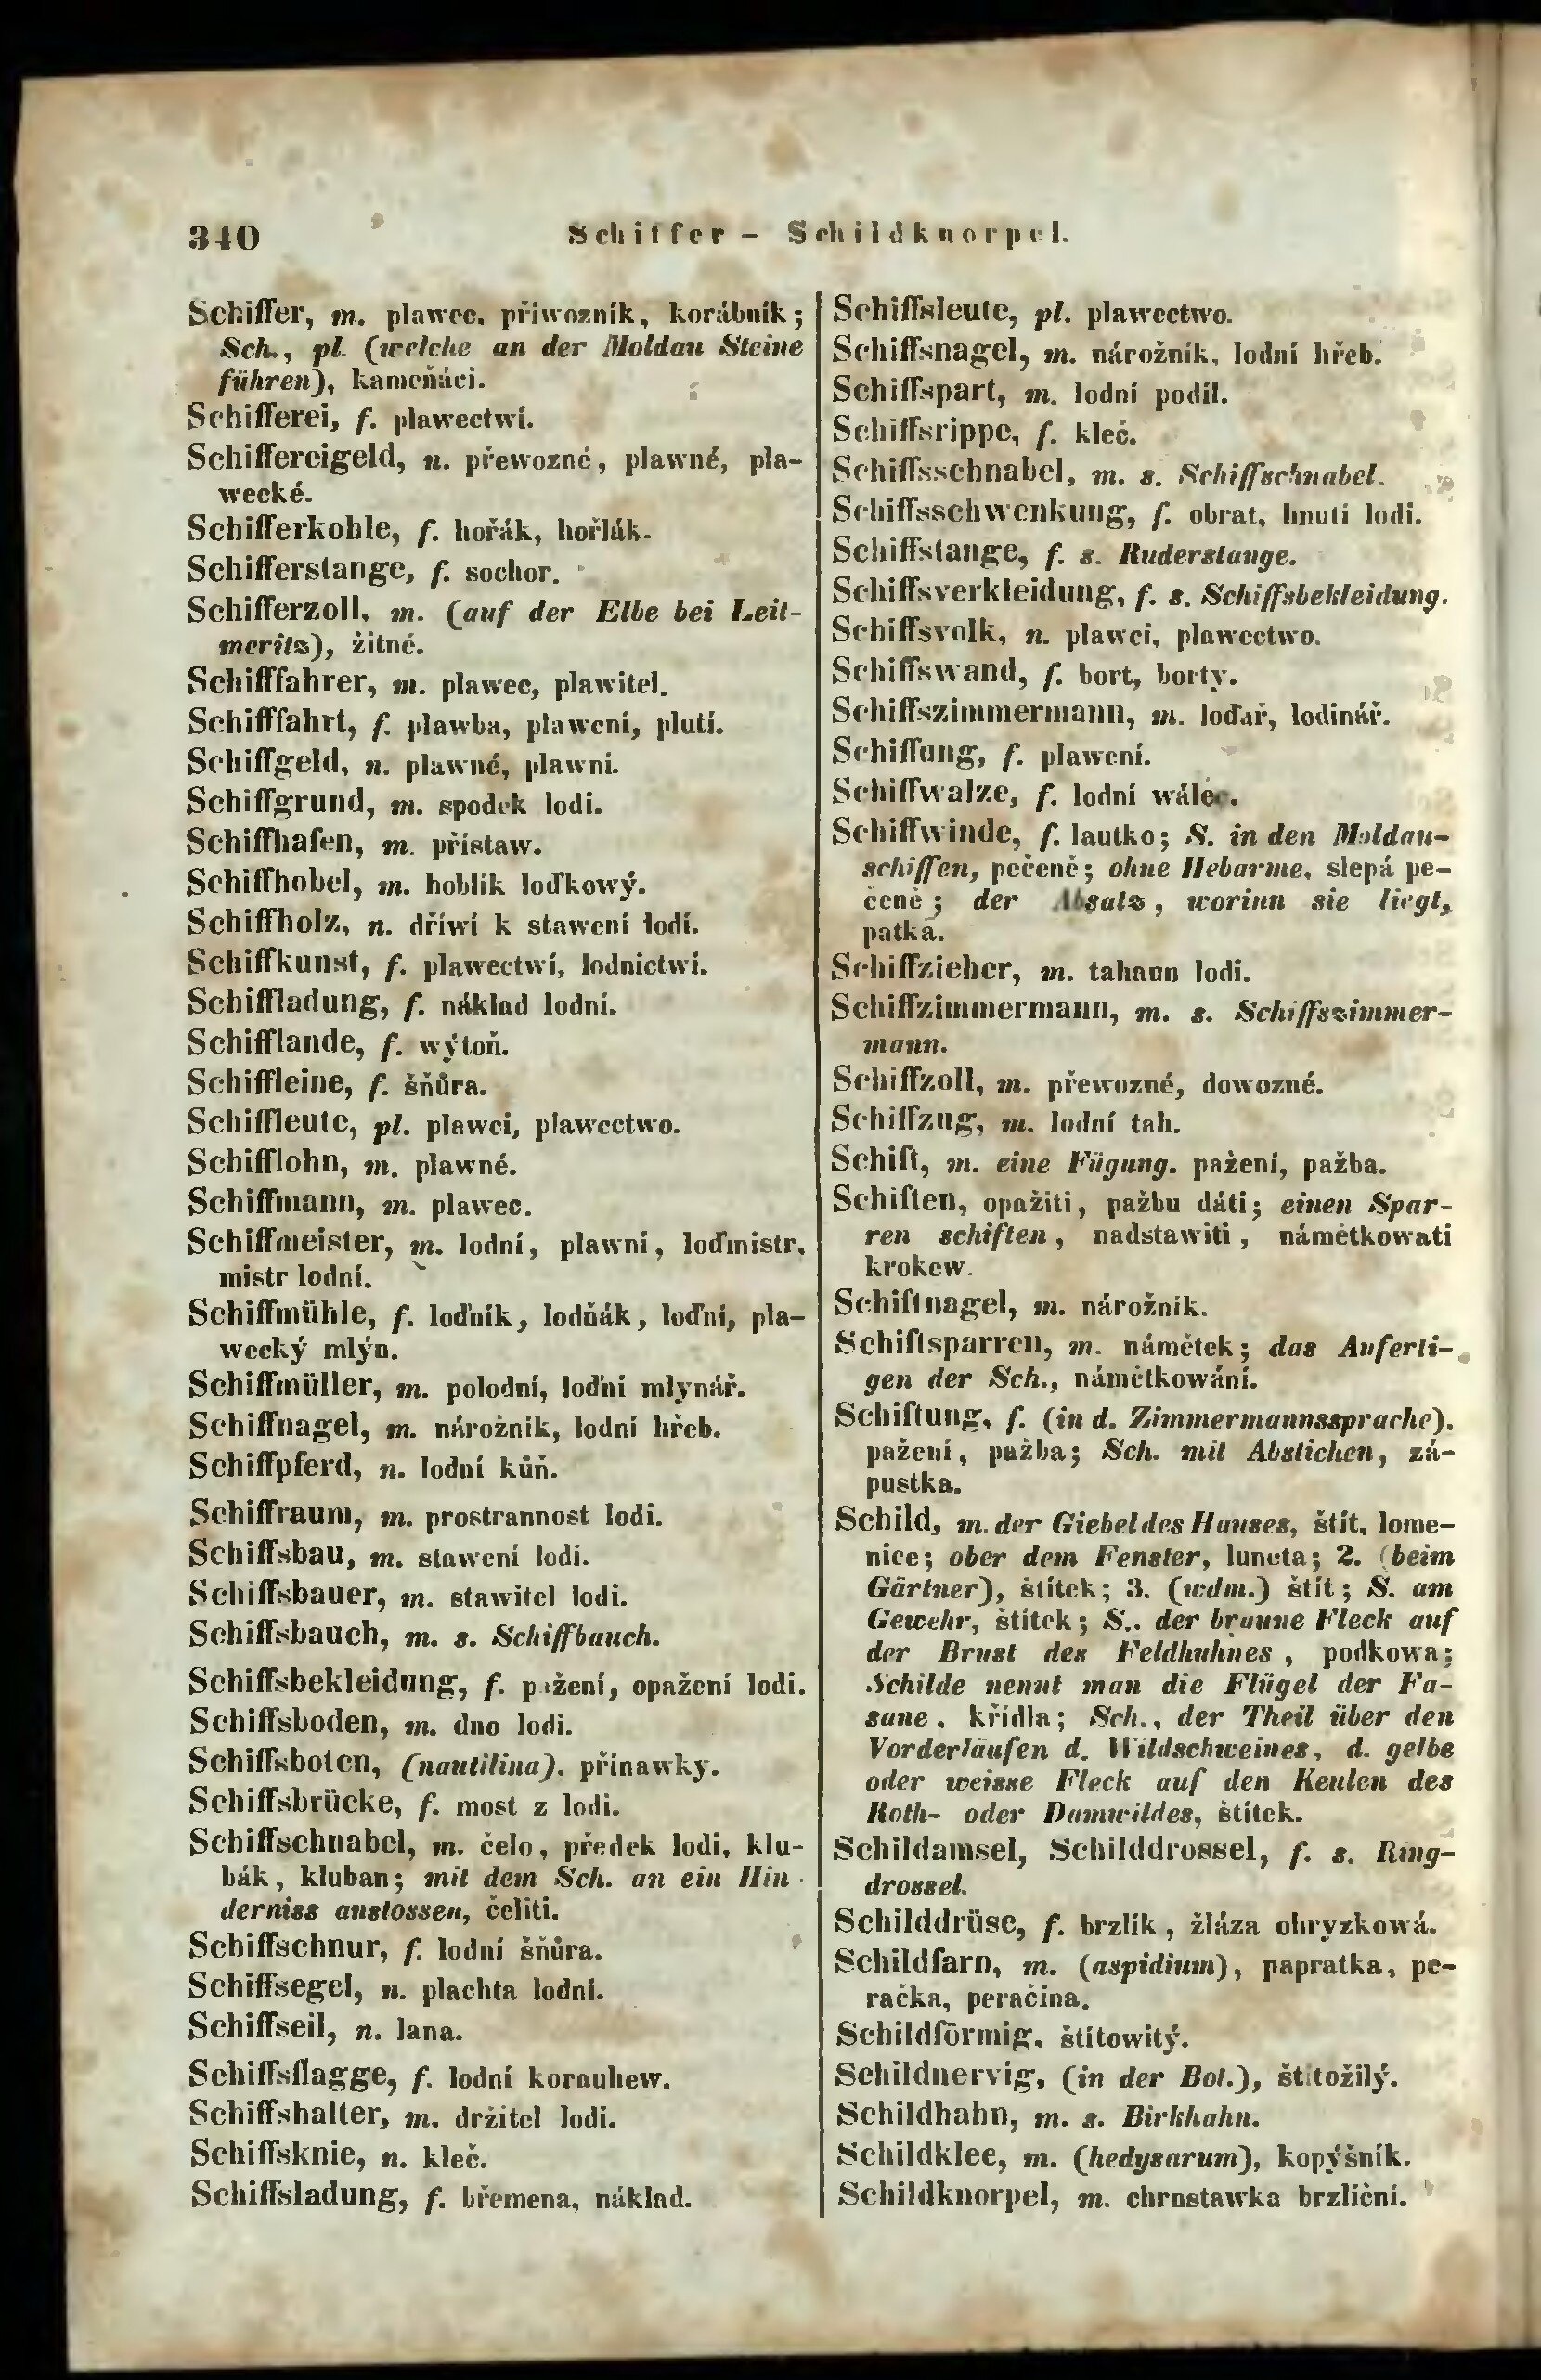 340
Schiffer – Schildknorpel.
Schiffer, m. plawec, příwozník, korábník;
Sch., pl. (welche an der Moldau Steine
führen), kameňáci.
Schifferei, f. plawectwí.
Schiffereigeld, n. přewozné, plawné, pla-
wecké.
Schifferkohle, f. hořák, hořlák.
Schifferstange, f. sochor.
Schifferzoll, m. (auf der Elbe bei Leit-
meritz), žitné.
Schifffahrer, m. plawec, plawitel.
Schifffahrt, f. plawba, plawení, plutí.
Schiffgeld, n. plawné, plawní.
Schiffgrund, m. spodek lodi.
Schiffhafen, m. přístaw.
Schiffhobel, m. hoblík loďkowý.
Schiffholz, n. dříwí k stawení lodí.
Schiffkunst, f. plawectwí, lodnictwí.
Schiffladung, f. náklad lodní.
Schifflande, f. wýtoň.
Schiffleine, f. šňůra.
Schiffleute, pl. plawci, plawectwo.
Schifflohn, m. plawné.
Schiffmann, m. plawec.
Schiffmeister, m. lodní, plawní, loďmistr,
mistr lodní.
Schiffmühle, f. loďník, lodňák, loďní, pla-
wecký mlýn.
Schiffmüller, m. polodní, loďní mlynář.
Schiffnagel, m. nárožník, lodní hřeb.
Schiffpferd, n. lodní kůň.
Schiffraum, m. prostrannost lodi.
Schiffsbau, m. stawení lodi.
Schiffsbauer, m. stawitel lodi.
Schiffsbauch, m. s. Schiffbauch.
Schiffsbekleidung, f. pažení, opažení lodi.
Schiffsboden, m. dno lodi.
Schiffsboten, (nautilina). přínawky.
Schiffsbrücke, f. most z lodi.
Schiffschnabel, m. čelo, předek lodi, klu-
bák, kluban; mit dem Sch. an ein Hin-
derniss anstossen, čeliti.
Schiffschnur, f. lodní šňůra.
Schiffsegel, n. plachta lodní.
Schiffseil, n. lana.
Schiffsflagge, f. lodní korauhew.
Schiffshalter, m. držitel lodi.
Schiffsknie, n. kleč.
Schiffsladung, f. břemena, náklad.
Schiffsleute, pl. plawectwo.
Schiffsnagel, m. nárožník, lodní hřeb.
Schiffspart, m. lodní podíl.
Schiffsrippe, f. kleč.
Schiffsschnabel, m. s. Schiffschnabel.
Schiffsschwenkung, f. obrat, hnutí lodi.
Schiffstange, f. s. Ruderstange.
Schiffsverkleidung, f. s. Schiffsbekleidung.
Schiffsvolk, n. plawci, plawectwo.
Schiffswand, f. bort, borty.
Schiffszimmermann, m. loďař, lodinář.
Schiffung, f. plawení.
Schiffwalze, f. lodní wálec.
Schiffwinde, f. lautko; S. in den Moldau-
schiffen, pečeně; ohne Hebarme, slepá pe-
čeně; der Absatz, worinn sie liegt,
patka.
Schiffzieher, m. tahaun lodi.
Schiffzimmermann, m. s. Schiffszimmer-
mann.
Schiffzoll, m. přewozné, dowozné.
Schiffzug, m. lodní tah.
Schift, m. eine Fügung. pažení, pažba.
Schiften, opažiti, pažbu dáti; einen Spar-
ren schiften, nadstawiti, námětkowati
krokew.
Schiftnagel, m. nárožník.
Schiftsparren, m. námětek; das Anferti-
gen der Sch., námětkowání.
Schiftung, f. (in d. Zimmermannssprache),
pažení, pažba; Sch. mit Abstichen, zá-
pustka.
Schild, m. der Giebel des Hauses, štít, lome-
nice; ober dem Fenster, luneta; 2. (beim
Gärtner), štítek; 3. (wdm.) štít; S. am
Gewehr, štítek; S.. der braune Fleck auf
der Brust des Feldhuhnes, podkowa;
Schilde nennt man die Flügel der Fa-
sane, křídla; Sch., der Theil über den
Vorderläufen d. Wildschweines, d. gelbe
oder weisse Fleck auf den Keulen des
Roth- oder Damwildes, štítek.
Schildamsel, Schilddrossel, f. s. Ring-
drossel.
Schilddrüse, f. brzlík, žláza ohryzkowá.
Schildfarn, m. (aspidium), papratka, pe-
račka, peračina.
Schildförmig, štítowitý.
Schildnervig, (in der Bot.), štítožilý.
Schildhahn, m. s. Birkhahn.
Schildklee, m. (hedysarum), kopýšník.
Schildknorpel, m. chrustawka brzliční.